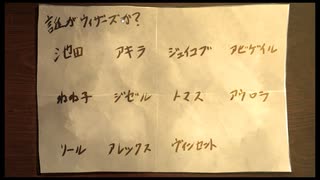 誰がウィザーズか?
池田 アキラ ジェイコブ アビゲイル
ねね子 ジゼル トマス アウロラ
ソール アレックス ヴィンセント